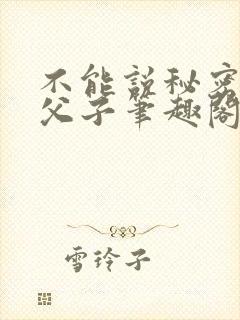 不能説秘密
父子筆趣閣
雪玲子